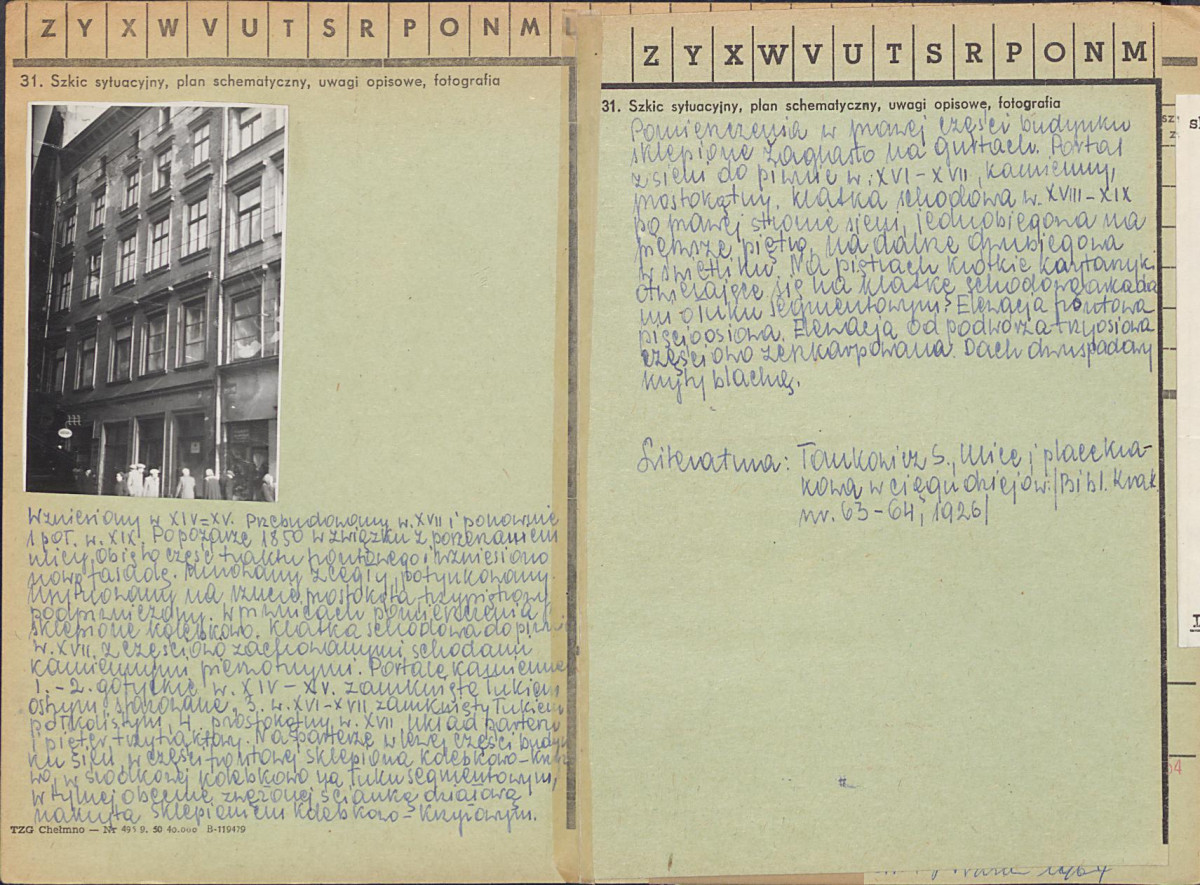 Z Y X W V U T S R P O N M L
31. Szkic sytuacyjny, plan schematyczny, uwagi opisowe, fotografia
Wzniesiony w XIV=XV. Przebudowany w. XVII i ponownie
1 poł. w. XIX. Po pożarze 1850 w związku z poszerzeniem
ulicy, obcięto część traktu frontowego i wzniesiono
nową fasadę. Murowany z cegły, potynkowany.
Usytuowany na rzucie prostokąta trzypiętrowy
podpiwniczony. W piwnicach pomieszczenia
sklepione kolebkowo. Klatka schodowa do piwn
w. XVII z częściowo zachowanymi schodami
kamiennymi pierwotnymi. Portale kamienne
1.-2. gotyckie w. XIV-XV. zamknięte łukiem
ostrym, fazowane, 3. w. XVI-XVII zamknięty łukiem
półkolistym, 4. prostokątny w. XVII. Układ parteru
i pięter trzytraktowy. Na parterze w lewej części budyn
ku sień, w części frontowej sklepiona kolebkowo-krzy
wo, w środkowej kolebkowo na łuku segmentowym,
w tylnej obecnie zwężonej ścianką działową
nakryta sklepieniem kolebkowo-krzyżowym.
TZG Chełmno — Nr 495 9. 50 40.000 B-119479
Z Y X W V U T S R P O N M
31. Szkic sytuacyjny, plan schematyczny, uwagi opisowe, fotografia
Pomieszczenia w prawej części budynku
sklepione żaglasto na gurtach. Portal
z sieni do piwnic w. XVI-XVII, kamienny,
prostokątny. Klatka schodowa w. XVIII-XIX
po prawej stronie sieni, jednobiegowa na
pierwsze piętro, na dalsze dwubiegowa
w świetliku. Na piętrach krótkie korytarzyki
otwierające się na klatkę schodową arkada
mi o łuku segmentowym. Elewacja frontowa
pięcioosiowa. Elewacja od podwórza trzyosiowa
częściowo zeszkarpowana. Dach dwuspadowy
kryty blachą.
Literatura: Tomkowicz S., Ulice i place Kra-
kowa w ciągu dziejów. /Bibl. Krak.
nr. 63-64, 1926/